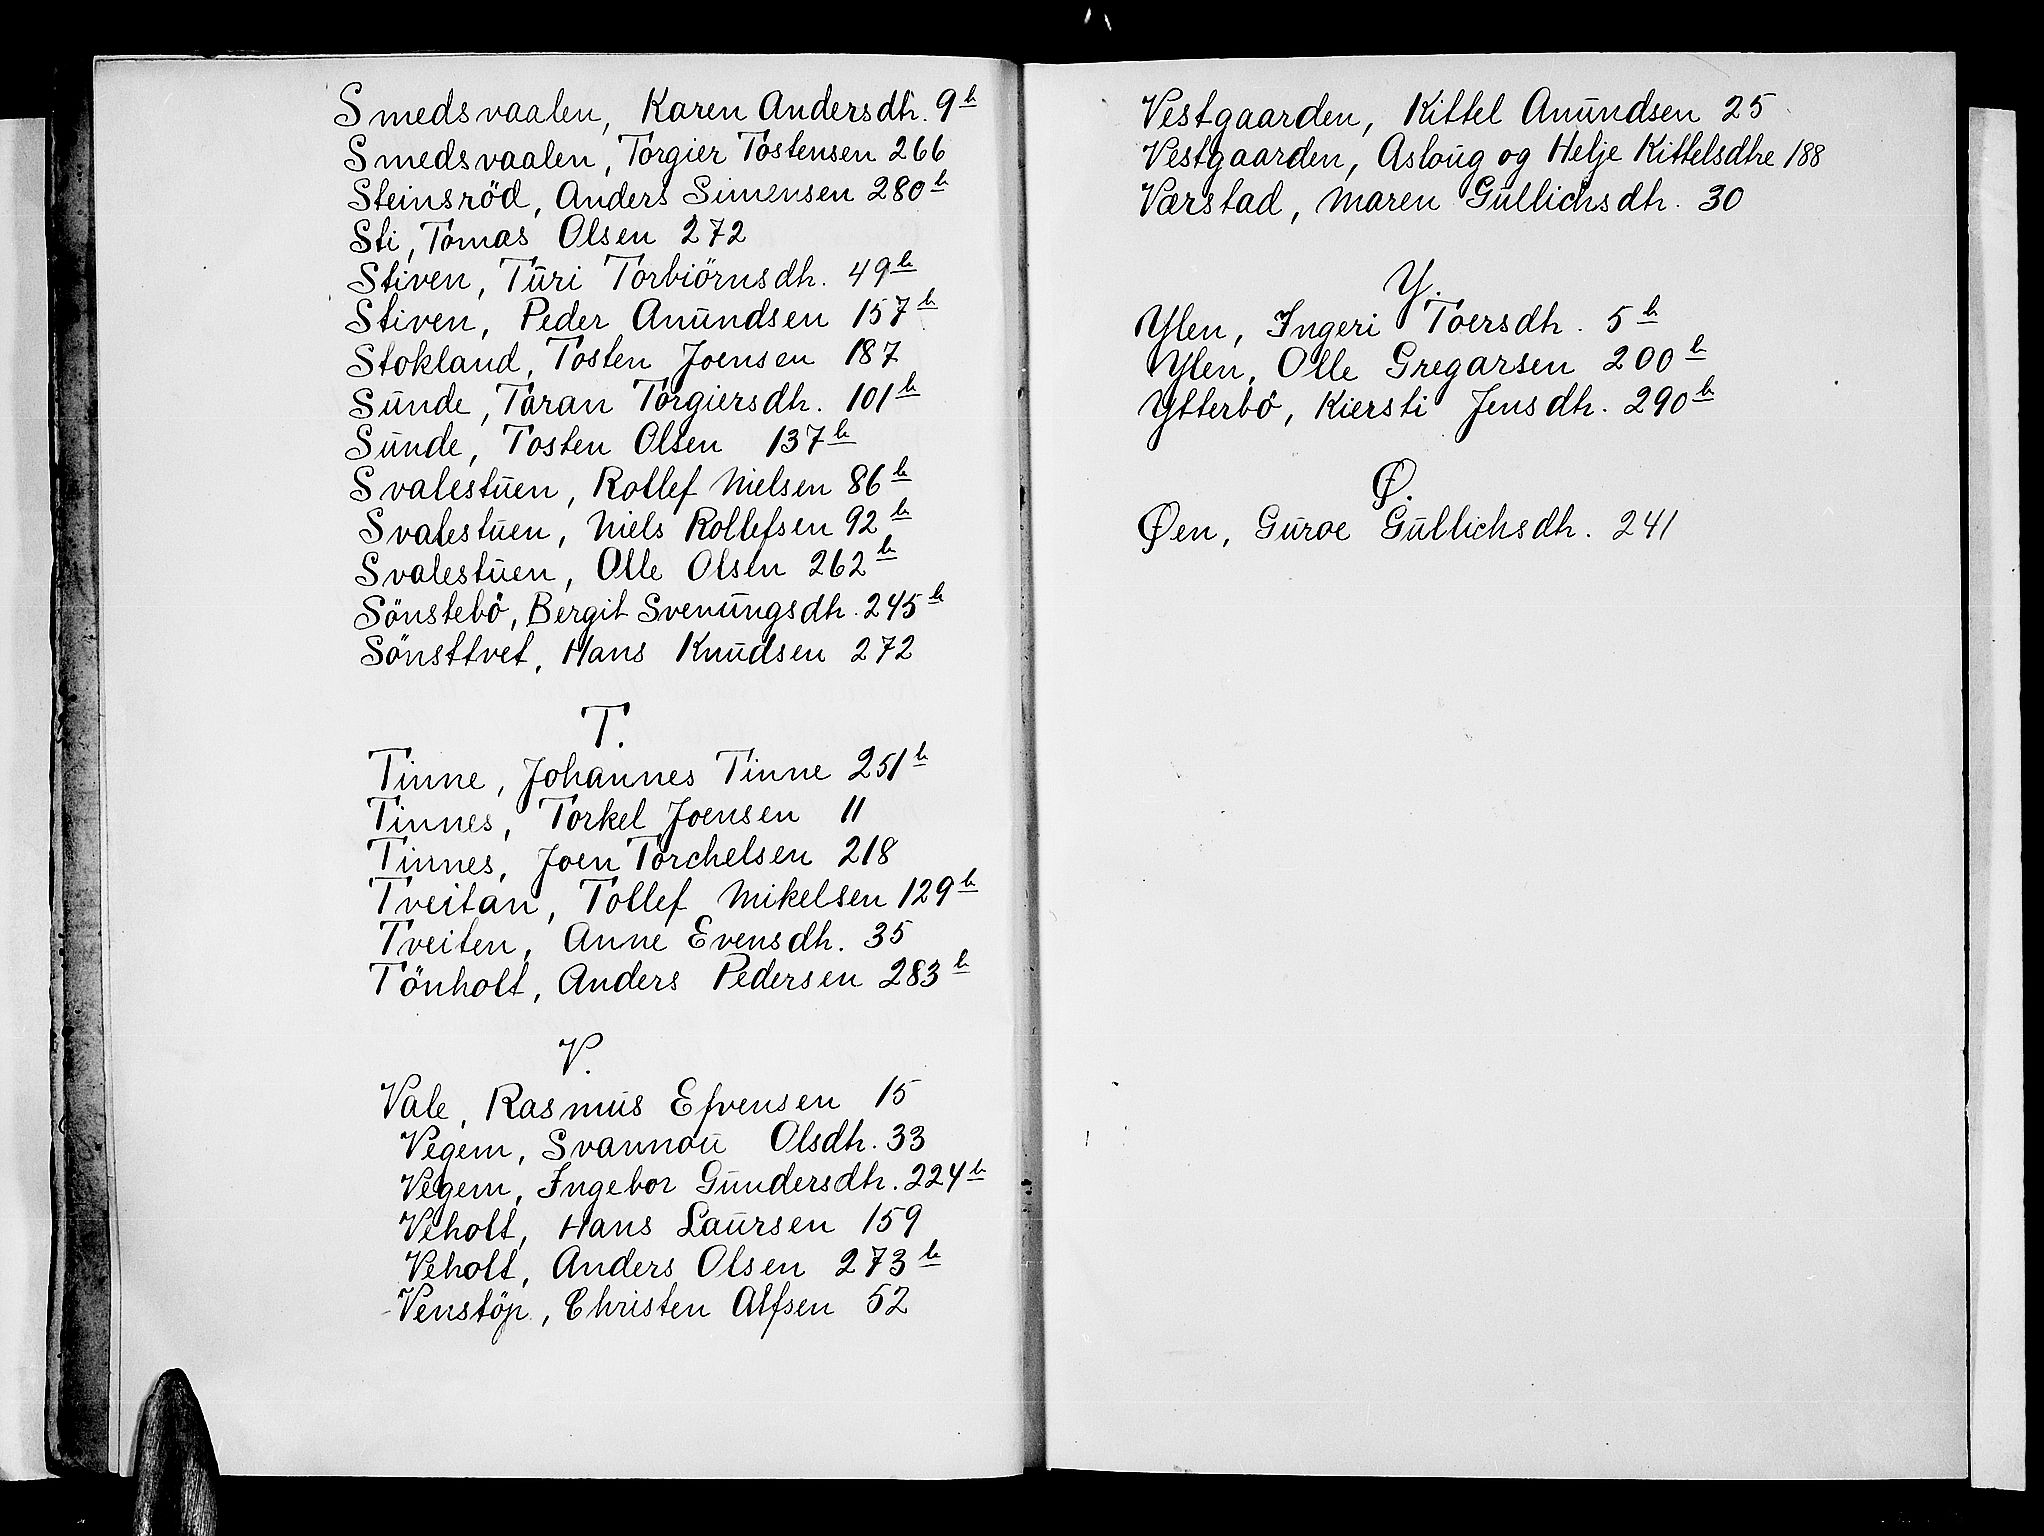 Smedsvaalen, Karen Andersdh. 9b
Smedsvaalen, Torgier Tostensen 266
Steinsröd, Anders Simensen 280b
Sti, Tomas Olsen 272
Stiven, Turi Torbiörnsdh. 49b
Stiven, Peder Anundsen 157b
Stokland, Tosten Joensen 187
Sunde, Taran Torgiersdh. 101b
Sunde, Tosten Olsen 137b
Svalestuen, Rollef Nielsen 86b
Svalestuen, Niels Rollefsen 92b
Svalestuen, Olle Olsen 262b
Sönstebö, Bergit Svenungsdh. 245b
Sönsttvet, Hans Knudsen 272
T.
Tinne, Johannes Tinne 251b
Tinnes, Torkel Joensen 11
Tinnes, Joen Torchelsen 218
Tveitan, Tollef Mikelsen 129b
Tveiten, Anne Evensdh. 35
Tönholt, Anders Pedersen 283b
V.
Vale, Rasmus Efvensen 15
Vegem, Svannou Olsdh. 33
Vegem, Ingebor Gundersdh. 224b
Veholt, Hans Laursen 159
Veholt, Anders Olsen 273b
Venstöp, Christen Alfsen 52
Vestgaarden, Kittel Anundsen 25
Vestgaarden, Asloug og Helje Kittelsdtre 188
Værstad, Maren Gullichsdh. 30
Y.
Ylen, Ingeri Toersdh. 5b
Ylen, Olle Gregarsen 200b
Ytterbö, Kiersti Jensdh. 290b
Ø.
Øen, Guroe Gullichsdh. 241